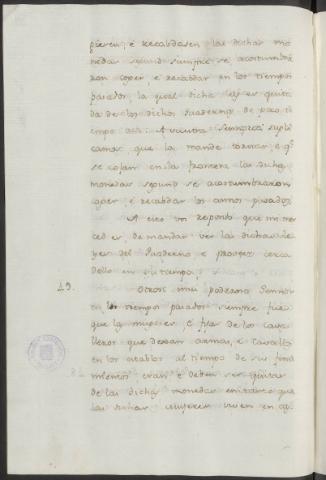 pieren, é recabdasen las dichas mo
nedas segund siempre se acostumbrá
ron coger, é recabdar en los tiempos
pasados, la qual dicha ley es quita
da de los dichos Quadernos de poco ti
empo acá. A vuestra Sennoria supli
camos que la mande tornar, é q.e
se cojan en la frontera las dichas
monedas segund se acostumbraron
coger, é recabdar los annos pasados.
A esto vos respondo que mi mer
ced es, de mandar ver las dichas le
yes del Quaderno é proveer cerca
dello en su tiempo.
19. Otrosi mui poderoso Sennor
en los tiempos pasados siempre fue
que las mugeres, é fijas de los cava
lleros que dexan armas, é cavallo
en los establos al tiempo de sus fina
mientos eran, é deben ser quitas
de las dichas monedas en tanto que
las dichas mugeres viven en